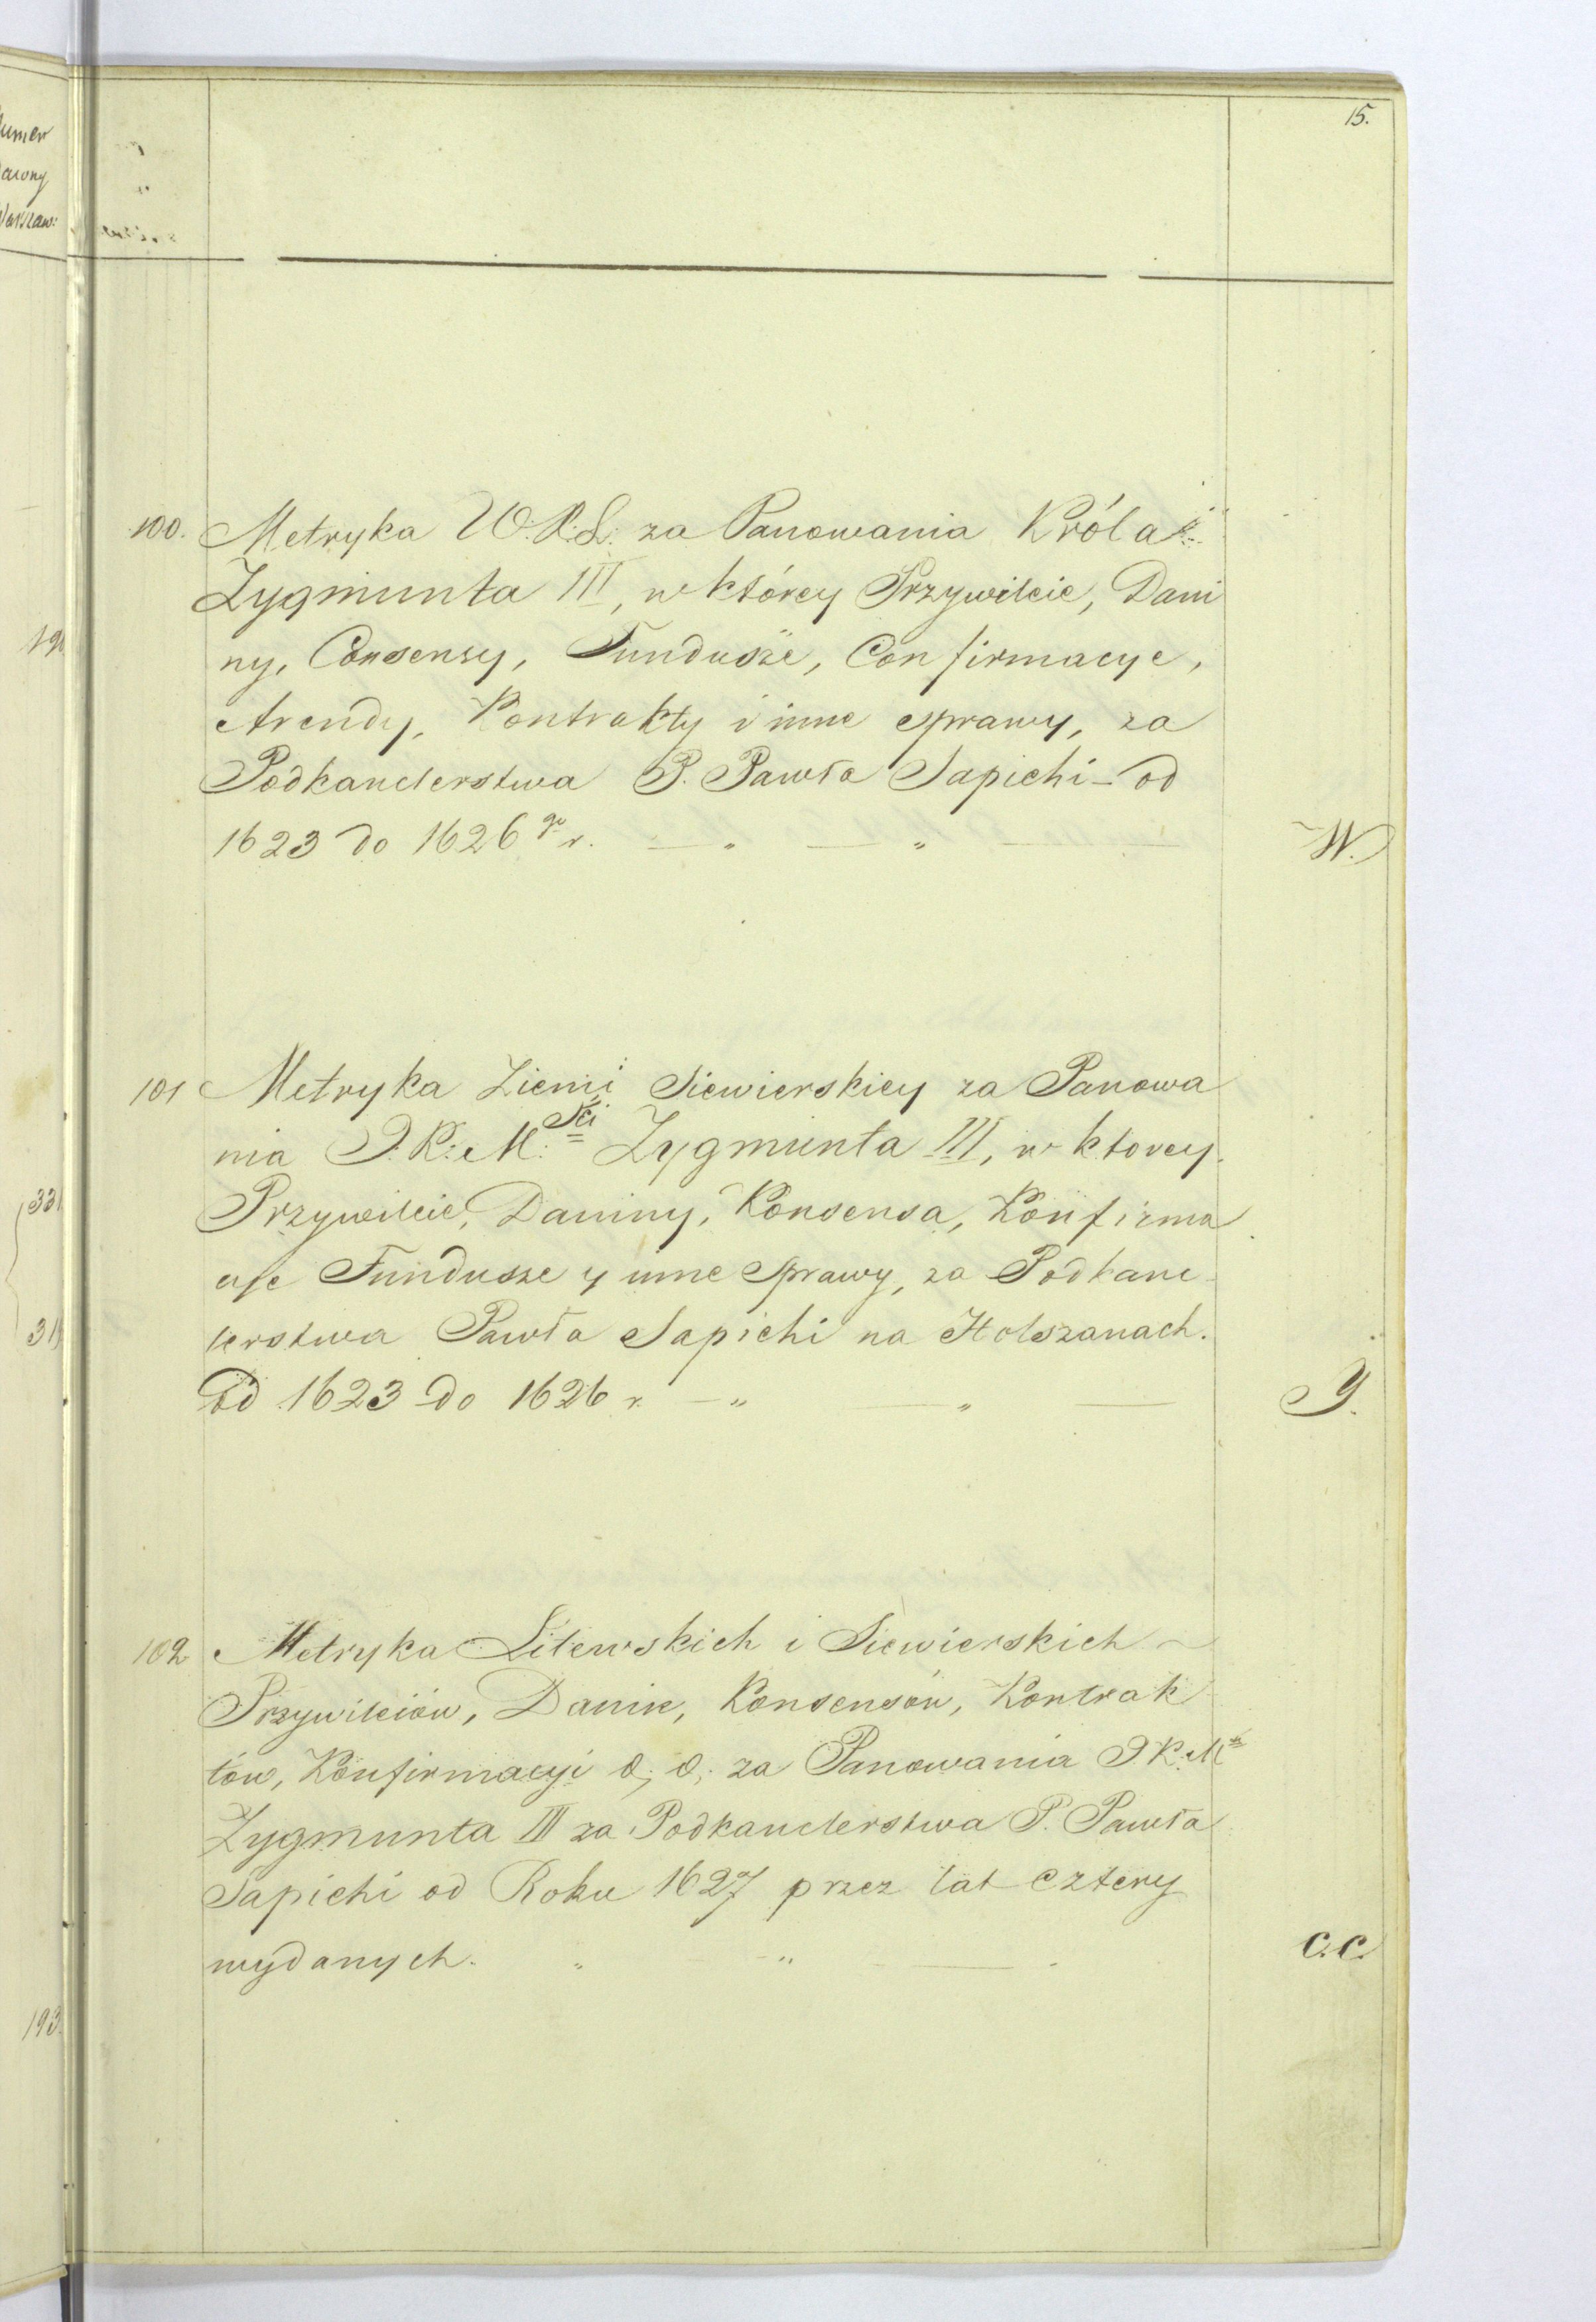 15.
100. Metryka W.X.L. za Panowania Króla
Zygmunta III, w którey Przywileie, Dani
ny, Consensy, Fundusze, Confirmacye,
Arendy, Kontrakty i inne sprawy, za
Podkanclerstwa P. Pawła Sapiehi – od
1623 do 1626 go r. — " — " —
W.
101 Metryka Ziemi Siewierskiey za Panowa
nia J.K.M.Sci Zygmunta III, w ktorey
Przywileie, Daniny, Konsensa, Konfirma
cye Fundusze y inne Sprawy, za Podkanc
lerstwa Pawła Sapiehi na Holszanach.
Od 1623 do 1626 r. — " — " —
Y.
102 Metryka Litewskich i Siewierskich
Przywileiów, Danin, Konsensów, Kontrak
tów, Konfirmacyi &; &; za Panowania J.K.M
Zygmunta III za Podkanclerstwa P. Pawła
Sapiehi od Roku 1627 przez lat cztery
wydanych. " — " —
C.C.